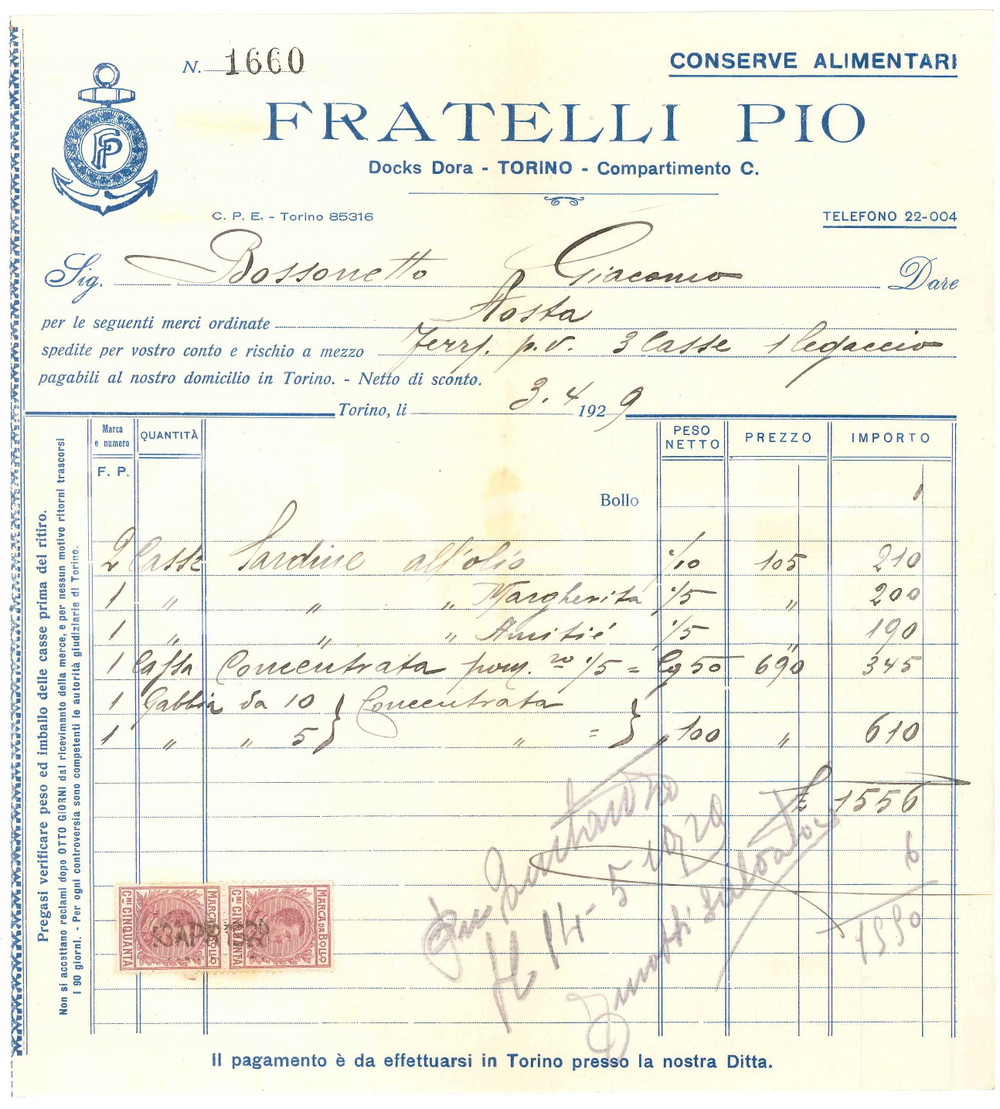 N. 1660
CONSERVE ALIMENTARI
FP
FRATELLI PIO
Docks Dora - TORINO - Compartimento C.
C. P. E. - Torino 85316
TELEFONO 22-004
Sig. Bossonetto Giacomo Dare
per le seguenti merci ordinate Aosta
spedite per vostro conto e rischio a mezzo Ferr. p.v. 3 Casse 1 legaccio
pagabili al nostro domicilio in Torino. - Netto di sconto.
Torino, li 3.4 1929
Marca e numero QUANTITÀ PESO NETTO PREZZO IMPORTO
F. P.
Bollo 1
2 Casse Sardine all'olio 1/10 105 210
1 " " " Margherita 1/5 " 200
1 " " " Amitié 1/5 " 190
1 Cassa Concentrata pom. ro 1/5 = Cg 50 690 345
1 Gabbia da 10 } Concentrata
1 " " 5 } " = } " 100 " 610
£ 1556
6
1550
14-5-1929
MARCA DA BOLLO
CMI CINQUANTA
MARCA DA BOLLO
CMI CINQUANTA
Pregasi verificare peso ed imballo delle casse prima del ritiro.
Non si accettano reclami dopo OTTO GIORNI dal ricevimento della merce, e per nessun motivo ritorni trascorsi
I 90 giorni. - Per ogni controversia sono competenti le autorità giudiziarie di Torino.
Il pagamento è da effettuarsi in Torino presso la nostra Ditta.